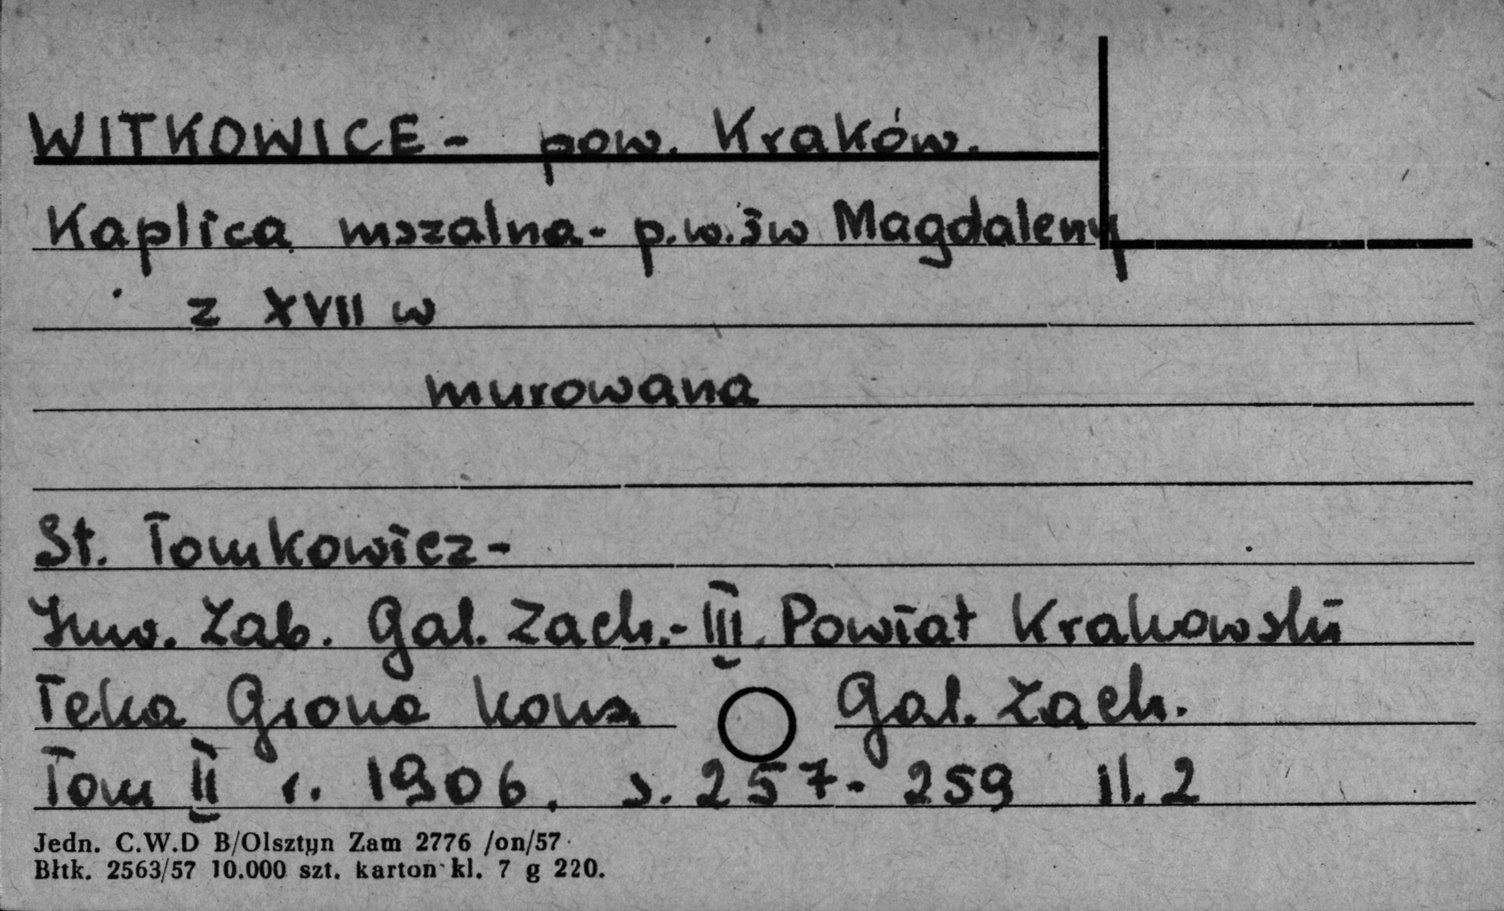 WITKOWICE - pow. Kraków.
Kaplica mszalna - p.w. św Magdaleny
z XVII w
murowana
St. Tomkowicz -
Inw. Zab. Gal. Zach. - III. Powiat Krakowski
Teka Grona Kons Gal. Zach.
Tom II r. 1906. s. 257 - 259 il. 2
Jedn. C.W.D B/Olsztyn Zam 2776 /on/57
Błtk. 2563/57 10.000 szt. karton kl. 7 g 220.